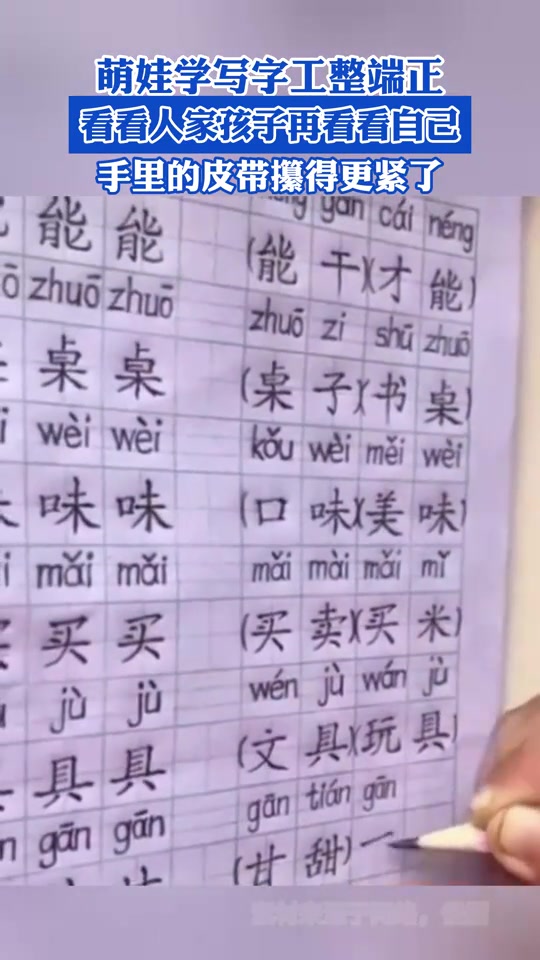 萌娃学写字工整端正
看看人家孩子再看看自己
手里的皮带攥得更紧了
gàn cái néng
能 能 (能 干)(才 能)
zhuō zhuō zhuō zi shū zhuō
桌 桌 (桌 子)(书 桌)
wèi wèi kǒu wèi měi wèi
味 味 (口 味)(美 味)
mǎi mǎi mǎi mài mǎi mǐ
买 买 (买 卖)(买 米)
jù jù wén jù wán jù
具 具 (文 具)(玩 具)
gān gān gān tián gān
(甘 甜)一